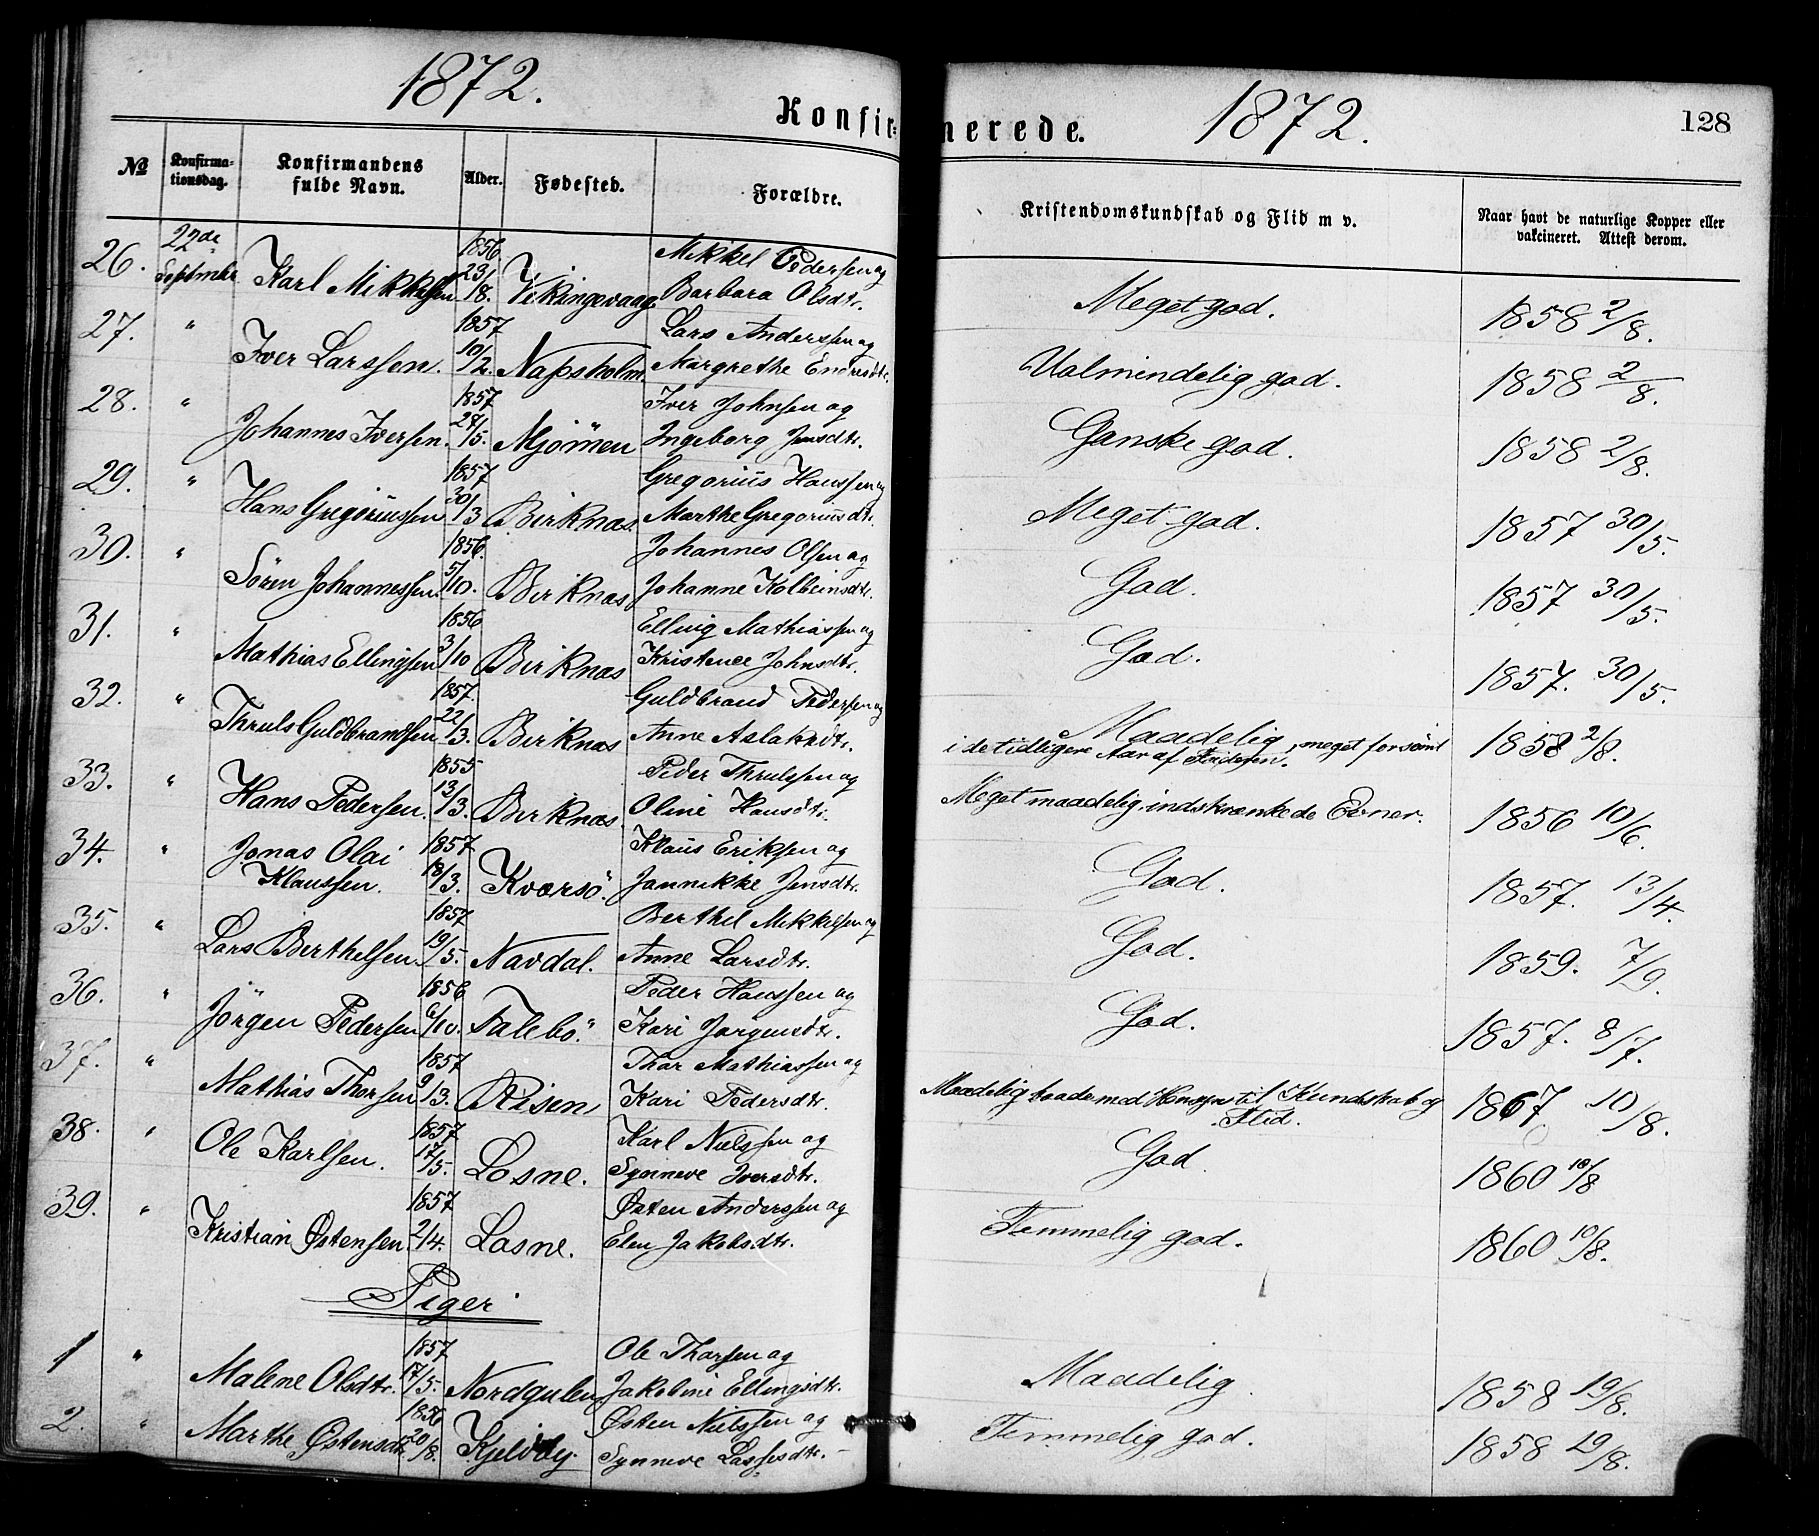 1872.
Konfir-
merede.
1872.
128
No
Konfirma-
tionsdag.
Konfirmandens
fulde Navn.
Alder.
Fødested.
Forældre.
Kristendomskundskab og Flid m v.
Naar havt de naturlige Kopper eller
vakcineret. Attest derom.
26. 22de Septmber Karl Mikkelsen 1856 23/8. Vikingevaag Mikkel Pedersen og Barbara Olsdtr. Meget god. 1858 2/8.
27. " Iver Larssen. 1857 10/2. Napsholm Lars Anderssen og Margrethe Endresdtr. Ualmindelig god. 1858 2/8.
28. " Johannes Iversen. 1857 27/5. Mjømen Iver Johnsen og Ingeborg Jensdtr. Ganske god. 1858 2/8.
29. " Hans Gregoriussen 1857 30/3 Birknæs. Gregorius Hanssen og Marthe Gregoriusdtr. Meget god. 1857 30/5.
30. " Søren Johannessen. 1856. 5/10. Birknæs Johannes Olsen og Johanne Kolbeinsdtr. God. 1857 30/5.
31. " Mathias Ellingsen 1856 3/10 Birknæs Elling Mathiassen og Kristence Johnsdtr. God. 1857. 30/5.
32. " Thruls Guldbrandsen 1857. 22/3. Birknæs Guldbrand Pedersen og Anne Aslaksdtr. Maadelig, meget forsømt
i de tidligere Aar af Faderen. 1858 2/8.
33. " Hans Pedersen. 1855 13/3. Birknæs. Peder Thrulssen og Oline Hansdtr. Meget maadelig, indskrænkede Evner. 1856 10/6.
34. " Jonas Olai
Klaussen. 1857 18/3. Kværsö. Klaus Eriksen og Jannikke Jensdtr. God. 1857. 13/4.
35. " Lars Berthelsen. 1857 19/5. Navdal. Berthel Mikkelsen og Anne Larsdtr. God. 1859. 7/9.
36. " Jörgen Pedersen 1856 6/10. Talebö. Peder Hanssen og Kari Jörgensdtr. God. 1857. 8/7.
37. " Mathias Thorsen 1857 9/3. Risen, Thor Mathiassen og Kari Pedersdtr. Maadelig baade med Hensyn til Kundskab og
Flid. 1867 10/8.
38. " Ole Karlsen. 1857 17/5. Losne. Karl Nielssen og Synneve Iversdtr. God. 1860 10/8
39. " Kristian Østensen. 1857 2/4. Losne. Østen Anderssen og Elen Jakobsdtr. Temmelig god. 1860 10/8.
Piger
1 " Malene Olsdtr. 1857 17/5. Nordgulen Ole Thorsen og Jakobine Ellingsdtr. Maadelig 1858 19/8.
2. " Marthe Østensdtr 1856 20/8. Kjelvby Østen Nielssen og Synneve Lassesdtr. Temmelig god. 1858 19/8.